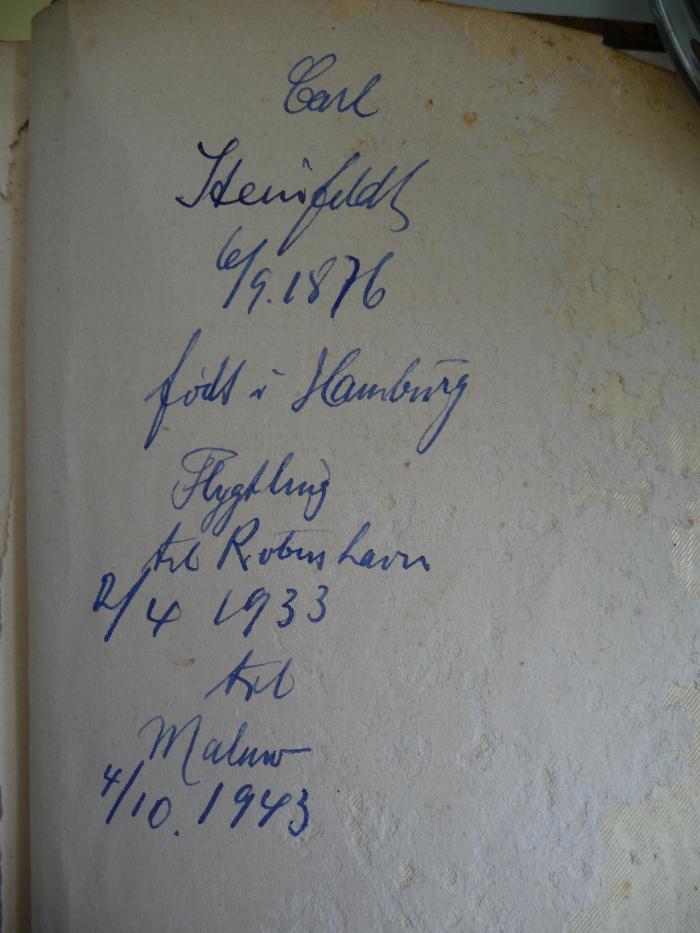 Carl
Steinfeldt
6/9.1876
født i Hamburg
Flygtling
til København
2/4 1933
til
Malmø
4/10.1943